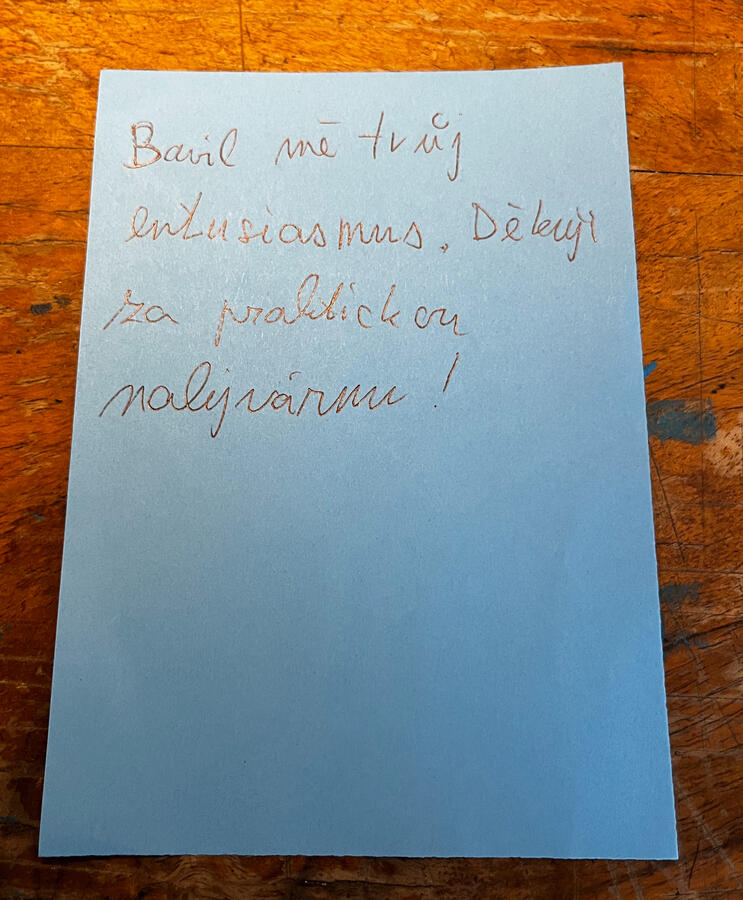 Bavil mě tvůj
entusiasmus. Děkuji
za praktickou
nalejvárnu!